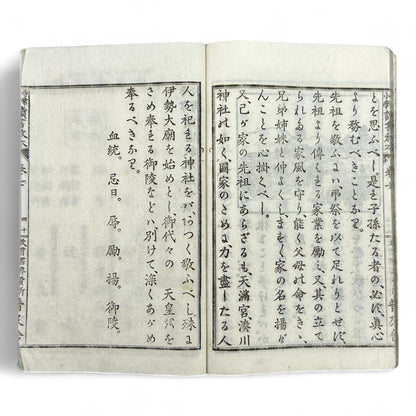 とを思ふべし是を子孫たる者の、必ず、眞心
より務むべきことなり。
先祖を敬ふは、弔祭を以て足れりとせず、
先祖より傳へたる家業を勵み、又其の立て
られたる家風を守り、能く父母の命をきゝ、
兄弟姉妹と仲よくし、ますく家の名を揚げ
んことを心掛くべし。
又、己が家の先祖にあらざるも、天滿宮、湊川
神社の如く、國家のためよ力を盡したる人
人を祀まる神社をバ、あつく敬ふべし、殊よ
伊勢大廟を始めとし、御代々の天皇を
さめ奉まる御陵などハ、別けて、深くあがめ
奉るべきなり。
血統。忌日。辱。勵。揚。御陵。